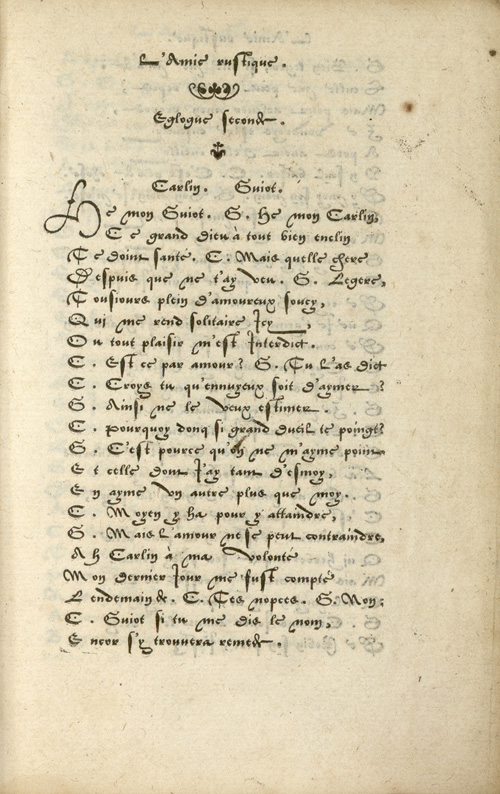 L'Amie rustique.
Eglogue seconde.
Carlin. Guiot.
He mon Guiot. G. He mon Carlin,
C Ce grand dieu à tout bien enclin
Te doint santé. C. Mais quelle chere
Despuis que ne t'ay veu. G. Legere,
Tousiours plein d'amoureux soucy,
Qui me rend solitaire Icy,
Ou tout plaisir m'est Interdict.
C. Est ce par amour? G. Tu L'as dict
C. Croys tu qu'ennuyeux soit d'aymer?
G. Ainsi ne le veux estimer.
C. Pourquoy donq si grand dueil te poingt?
G. C'est pource qu'on ne m'ayme point
Et celle dont J'ay tant d'esmoy,
En ayme un autre plus que moy.
C. Moyen y ha pour y attaindre,
G. Mais L'amour ne se peut contraindre,
Ah Carlin à ma volonté
Mon dernier Jour me fust compté
L'endemain de. C. Tes nopces. G. Non:
C. Guiot si tu me dis le nom,
Encor s'y trouvera remede.